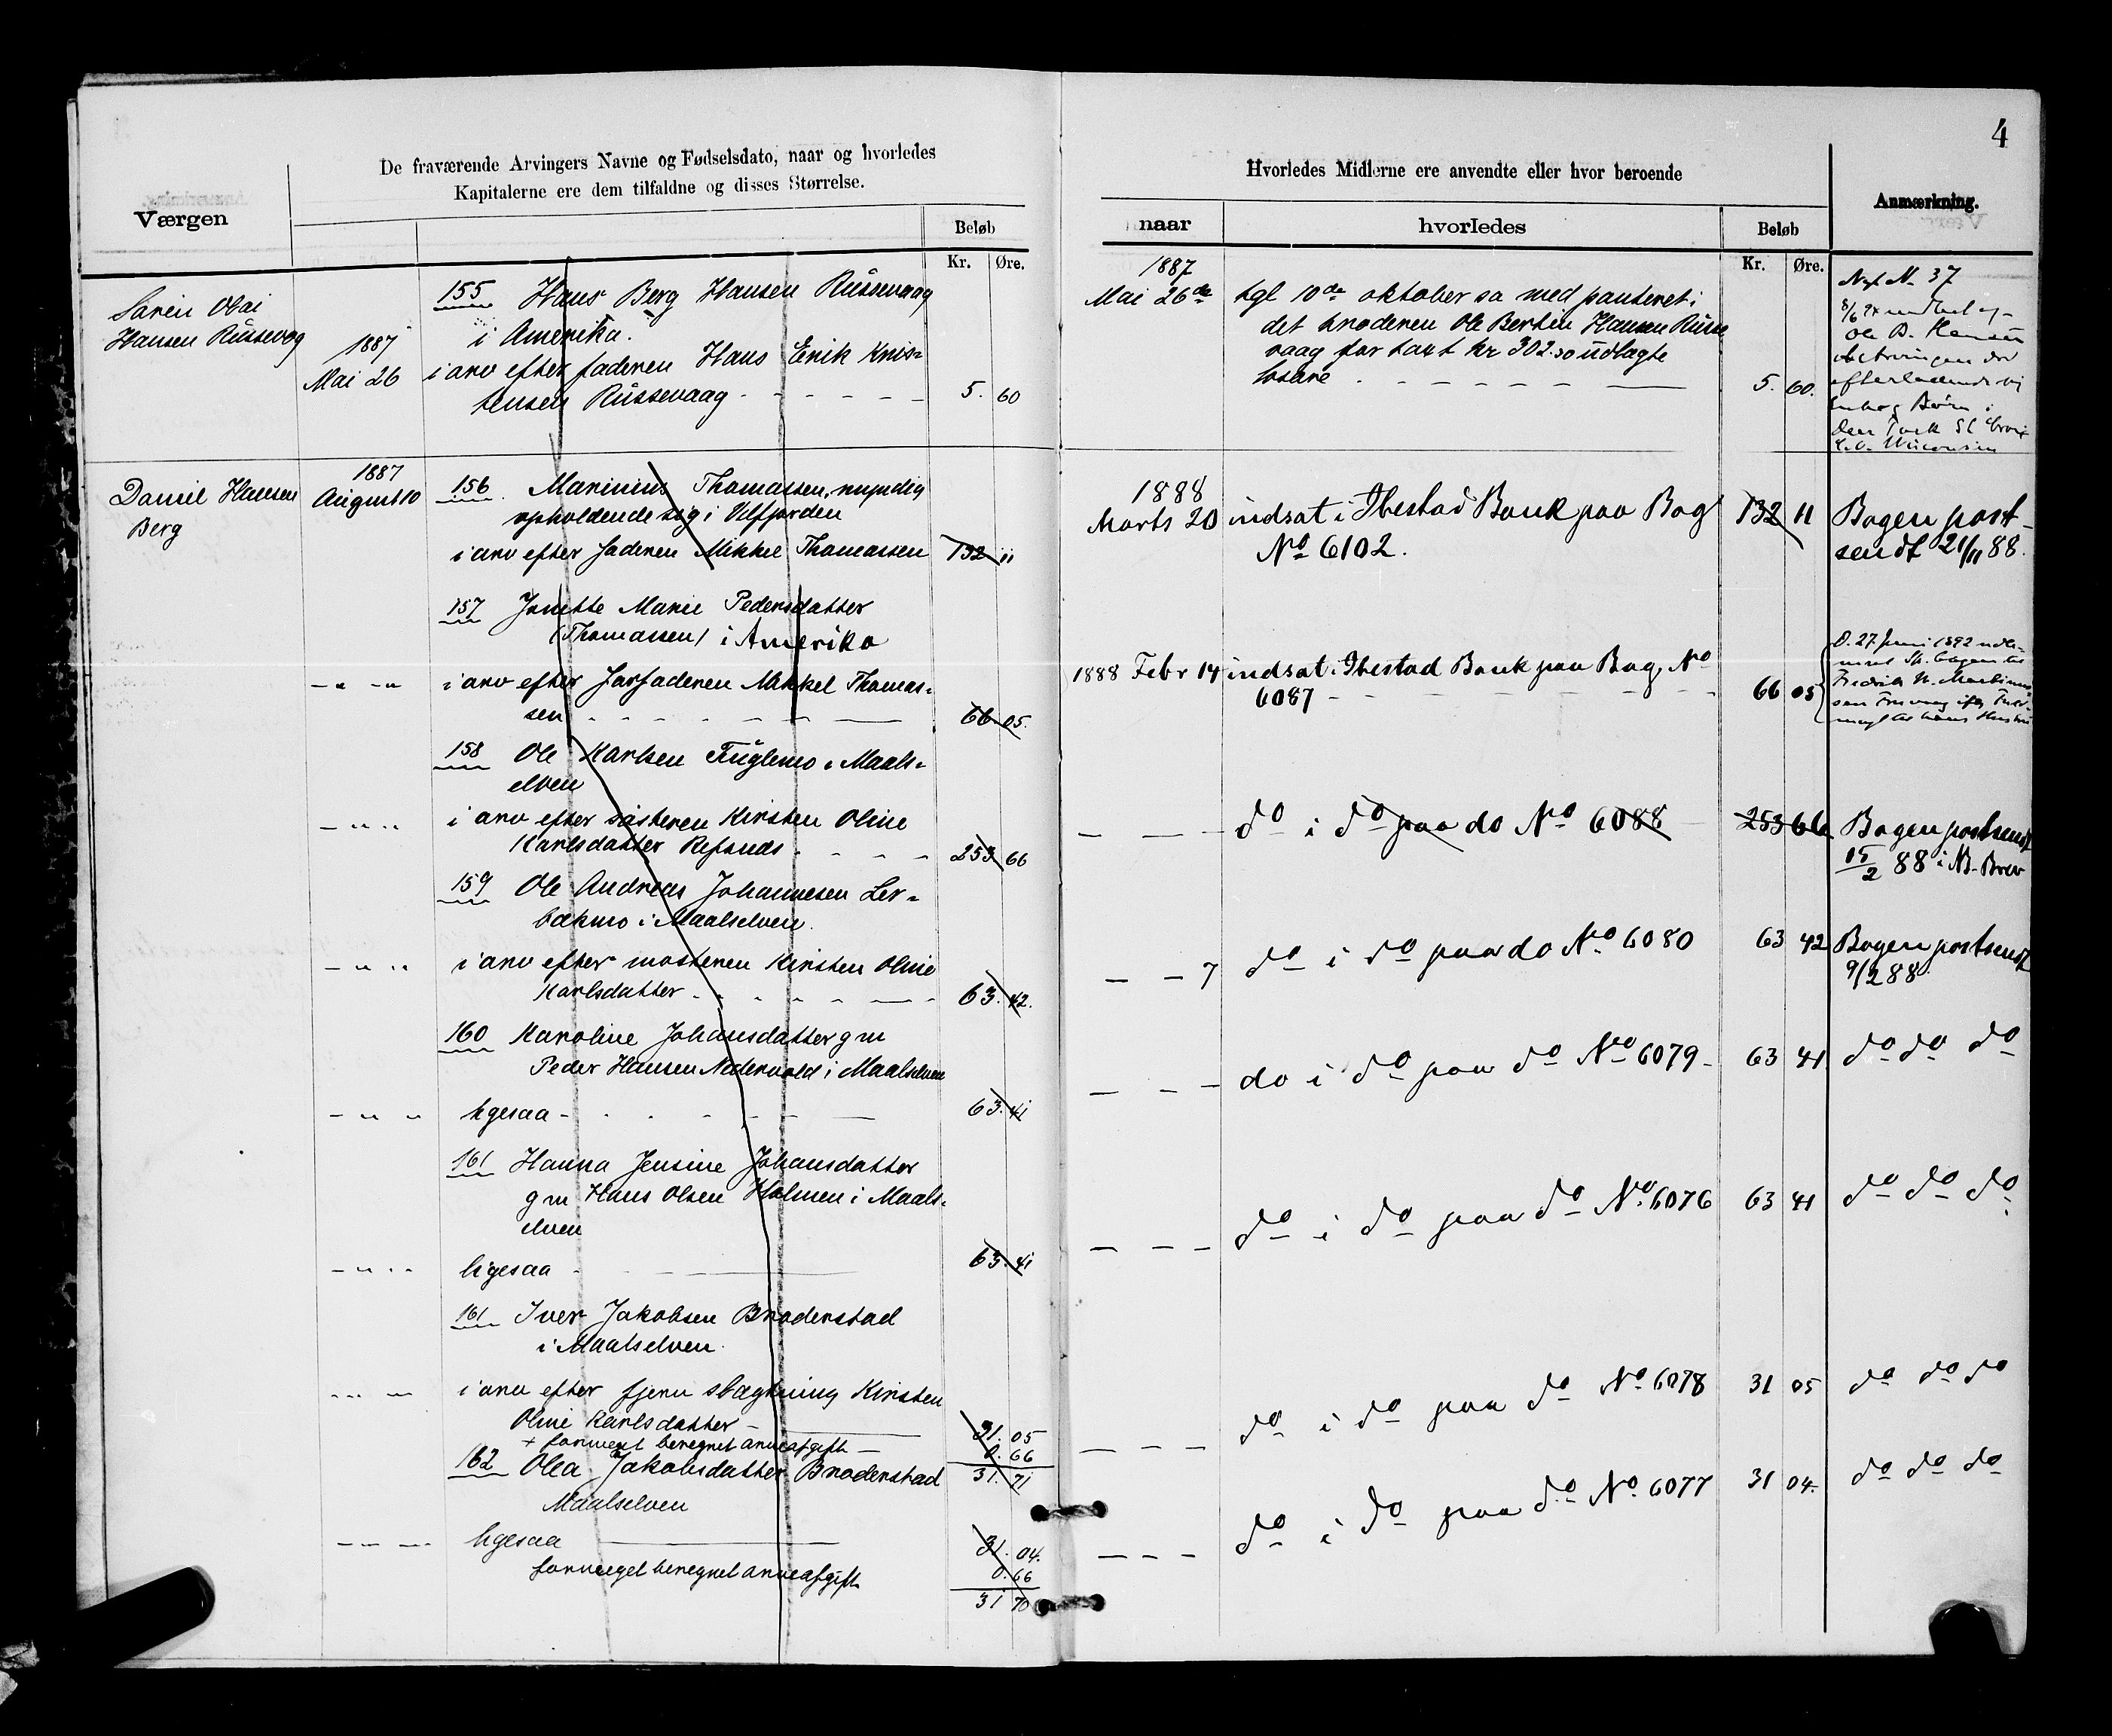 4
De fraværende Arvingers Navne og Fødselsdato, naar og hvorledes
Kapitalerne ere dem tilfaldne og disses Størrelse.
Værgen
Beløb
Kr. Øre.
Hvorledes Midlerne ere anvendte eller hvor beroende
naar
hvorledes
Beløb
Kr. Øre.
Anmærkning.
Sören Obai
Hansen Rüssevog
1887
Mai 26
155 Hans Berg Hansen Rüssevaag
i Amerika.
i arv efter faderen Hans Erik Kris-
tensen Rüssevaag - - - - - - 5. 60
1887
Mai 26de
tgl 10de oktober sa med panteret i
det broderen Ole Bertin Hansen Rüsse
vaag for taxt kr 302.30 üdlagte
losøre - - - - - - 5. 60.
No 37
Ole B. Hansen
efterladende sig
Børn i
St Croix
Wisconsin
Daniel Hansen
Berg
1887
August 10
156 Marinius Thomassen, myndig
opholdende sig i Ulfjorden
i arv efter faderen Mikkel Thomassen 132 11
1888
Marts 20
indsat i Ibestad Bank paa Bog
No 6102.
132 11
Bogen post-
sendt 21/11 88.
157 Jonette Marie Pedersdatter
(Thomassen) i Amerika
- " - " i arv efter Farfaderen Mikkel Thomas-
sen - - - - - - 66. 05.
1888 Febr 14 indsat i Ibestad Bank paa Bog, No
6087 - - - - - - 66 05
D. 27 Juni 1892 udle-
Fredrik N. Martinus-
158 Ole Karlsen Füglemo i Maals-
elven
- " " i arv efter søsteren Kirsten Oline
Karlsdatter Refsnes - - - 253 66
- - - do i do paa do No 6088 253 66
Bogen postsendt
15/2 88 i NB. Brev
159 Ole Andreas Johannesen Ler-
bækmo i Maalselven.
- " " i arv efter mosteren Kirsten Oline
Karlsdatter - - - - - - 63. 42.
- - 7 do i do paa do No 6080 63 42
Bogen postsendt
9/2 88.
160 Karoline Johansdatter g m
Peder Hansen Nedervold i Maalselven
- " " ligesaa - - - - - 63. 41
- - - do i do paa do No 6079 - 63 41
do do do
161 Hanna Jensine Johansdatter
g m Hans Olsen Holmen i Maals-
elven
- " " ligesaa - 63. 41
- - - do i do paa do No 6076 63 41
do do do
161 Iver Jakobsen Broderstad
i Maalselven.
- " " i arv efter fjern slægtning Kirsten
Oline Karlsdatter - 31. 05
+ formeget beregnet arveafgift - 0. 66
31. 71
- - - do i do paa do No 6078 31 05
do do do
162 Olea Jakobsdatter Broderstad
Maalselven
- " " ligesaa 31. 04.
formeget beregnet arveafgift 0. 66
31 70
- - - do i do paa do No. 6077 31 04.
do do do